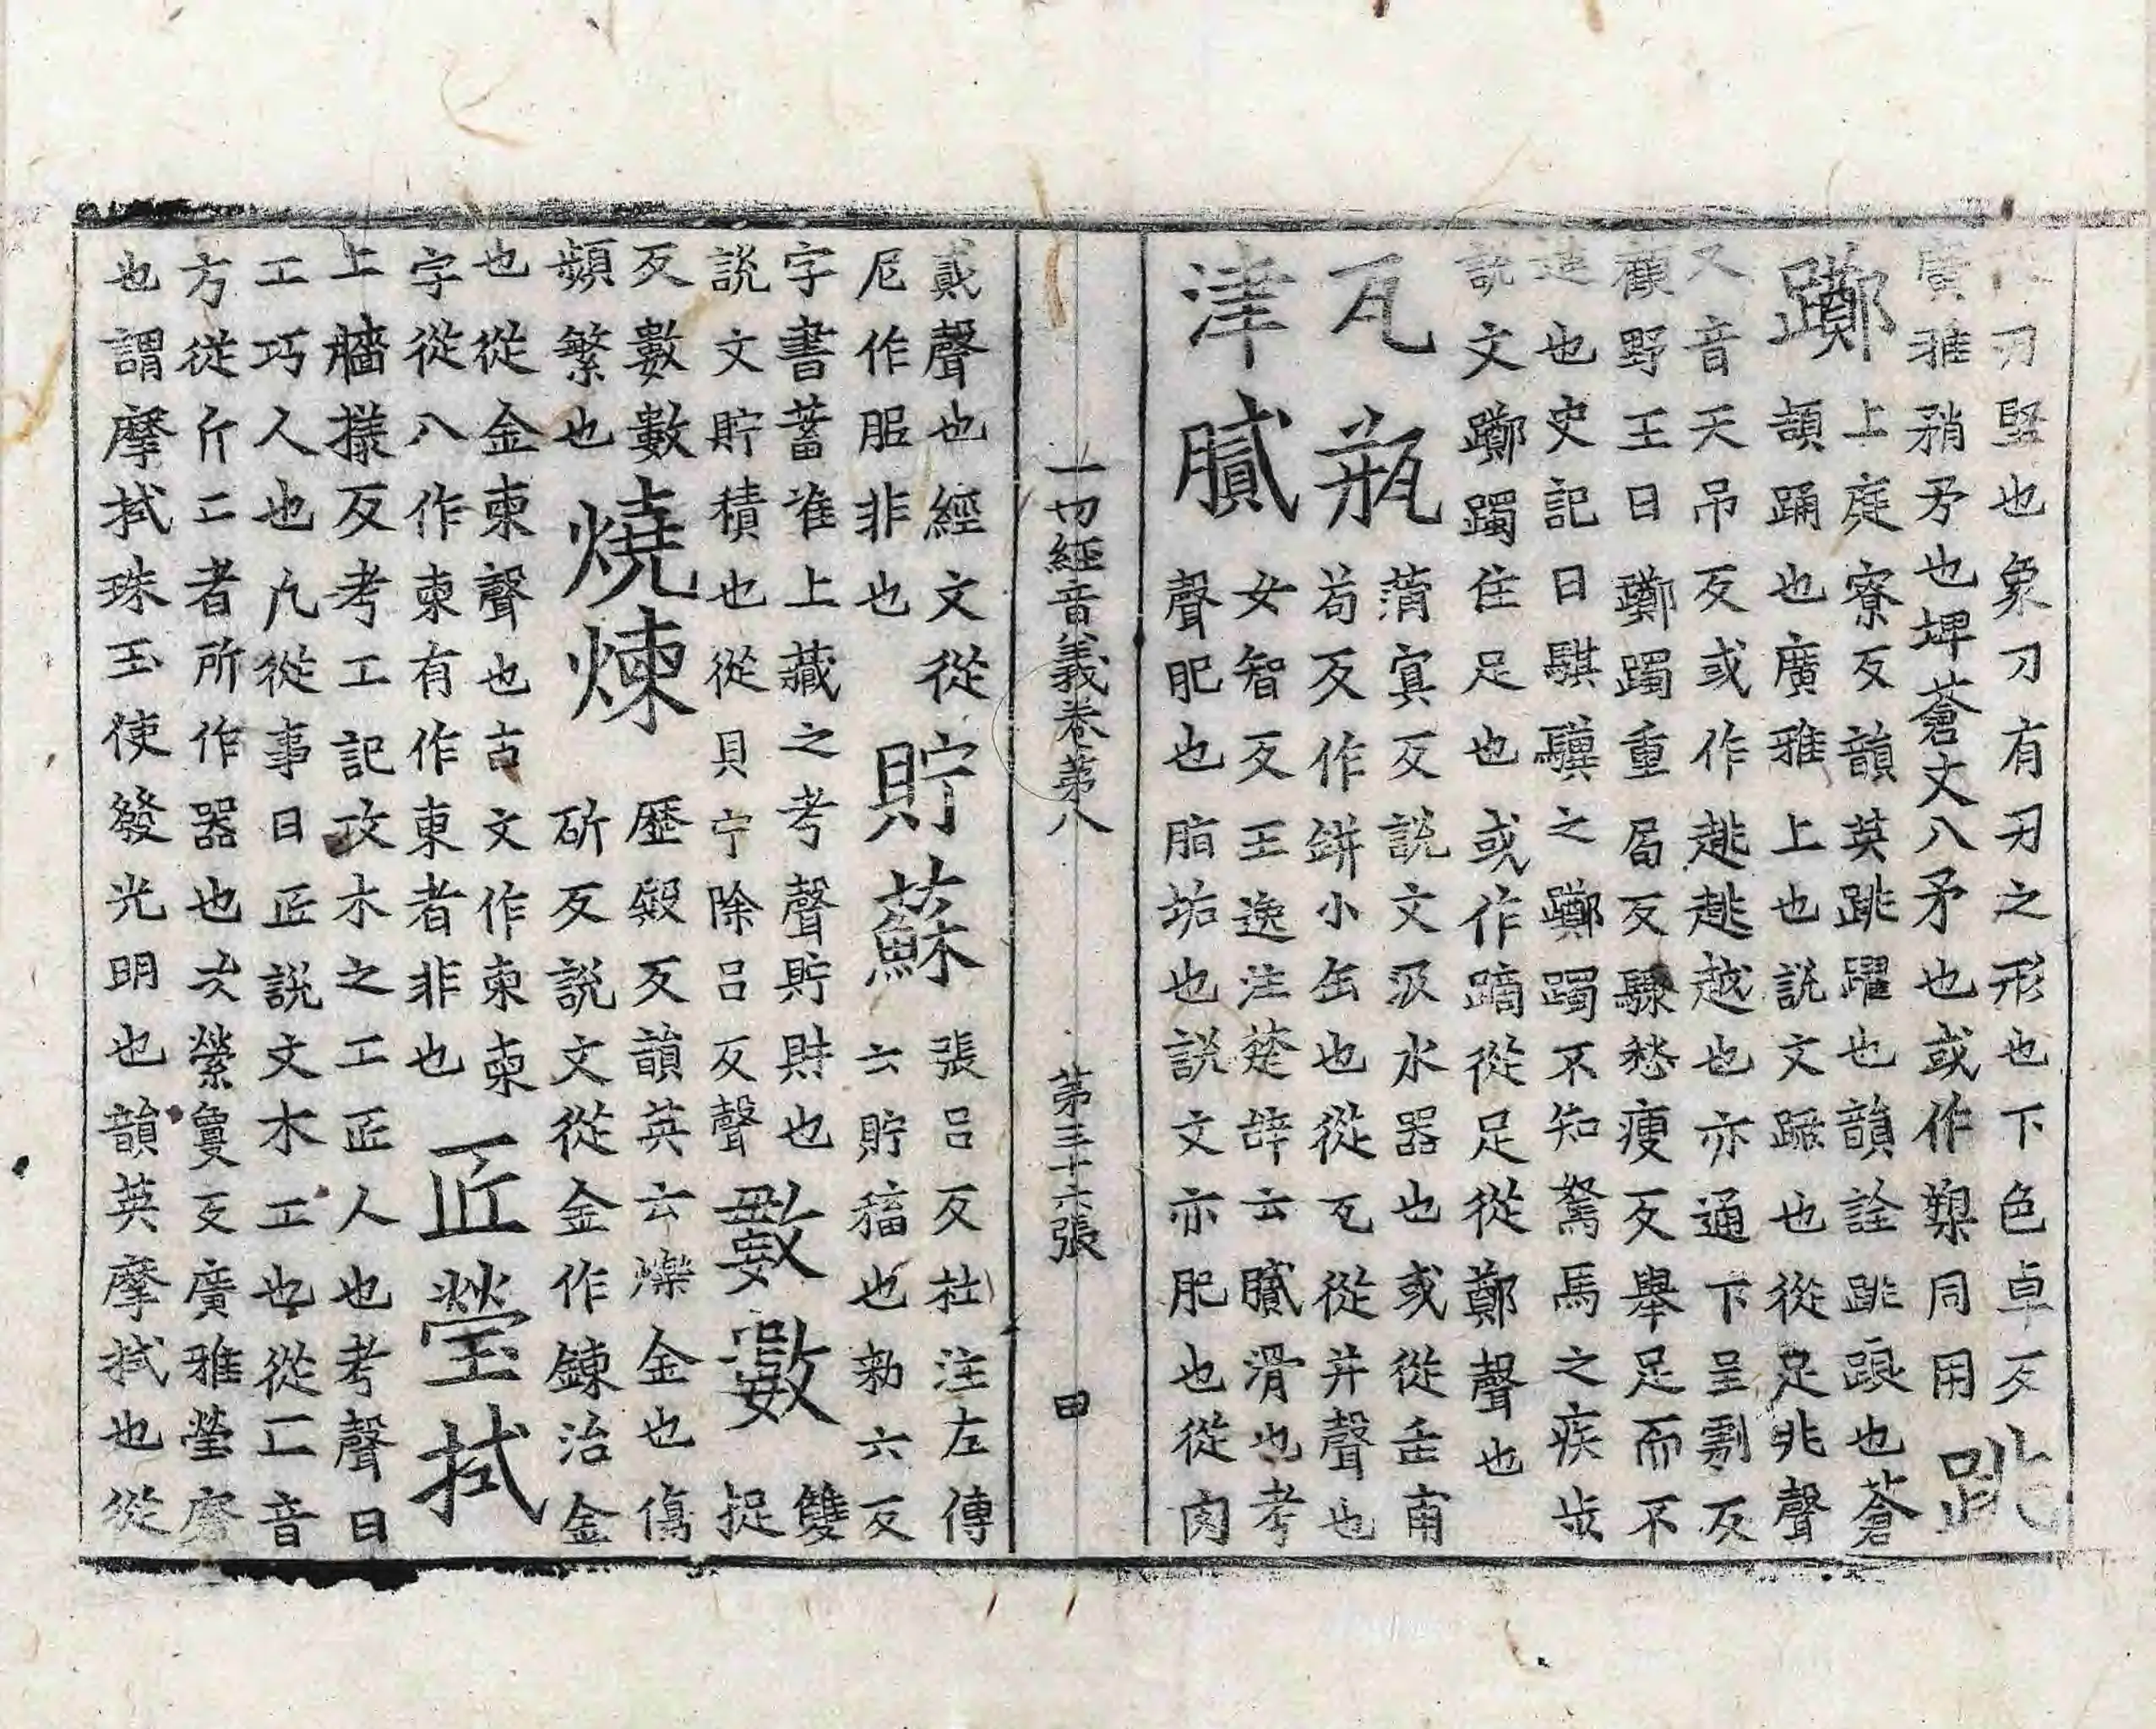 刃堅也象刀有刃之形也下色卓反
廣雅矟矛也埤蒼丈八矛也或作槊同用
跳躑
上庭寮反韻英跳躍也韻詮跳踉也蒼
頡踊也廣雅上也說文蹶也從足兆聲
又音天吊反或作趒趒越也亦通下呈剭反
顧野王曰躑躅重局反驟愁瘦反舉足而不
進也史記曰騏驥之躑躅不知駑馬之疾步
說文躑躅住足也或作蹢從足從鄭聲也
瓦瓶
蓱㝠反說文汲水器也或從缶甫
茍反作缾小缶也從瓦從并聲也
津膩
女智反王逸注楚辝云膩滑也考
聲肥也脂垢也說文亦肥也從肉
一切經音義卷苐八 苐三十六張 曰
貳聲也經文從
尼作𦙫非也
貯蘇
張呂反杜注左傳
云貯稸也勑六反
字書蓄准上藏之考聲貯財也
說文貯積也從貝宁除呂反聲
數數
雙捉
反數數
頻繁也
燒煉
歷叚反韻英云爍金也傷
斫反說文從金作鍊治金
也從金柬聲也古文作柬柬
字從八作柬有作東者非也
匠瑩拭
上牆㨾反考工記攻木之工匠人也考聲曰
工巧人也凢從事曰匠說文木工也從匚音
方從斤二者所作器也次縈敻反廣雅瑩磨
也謂摩拭珠玉使發光明也韻英摩拭也從